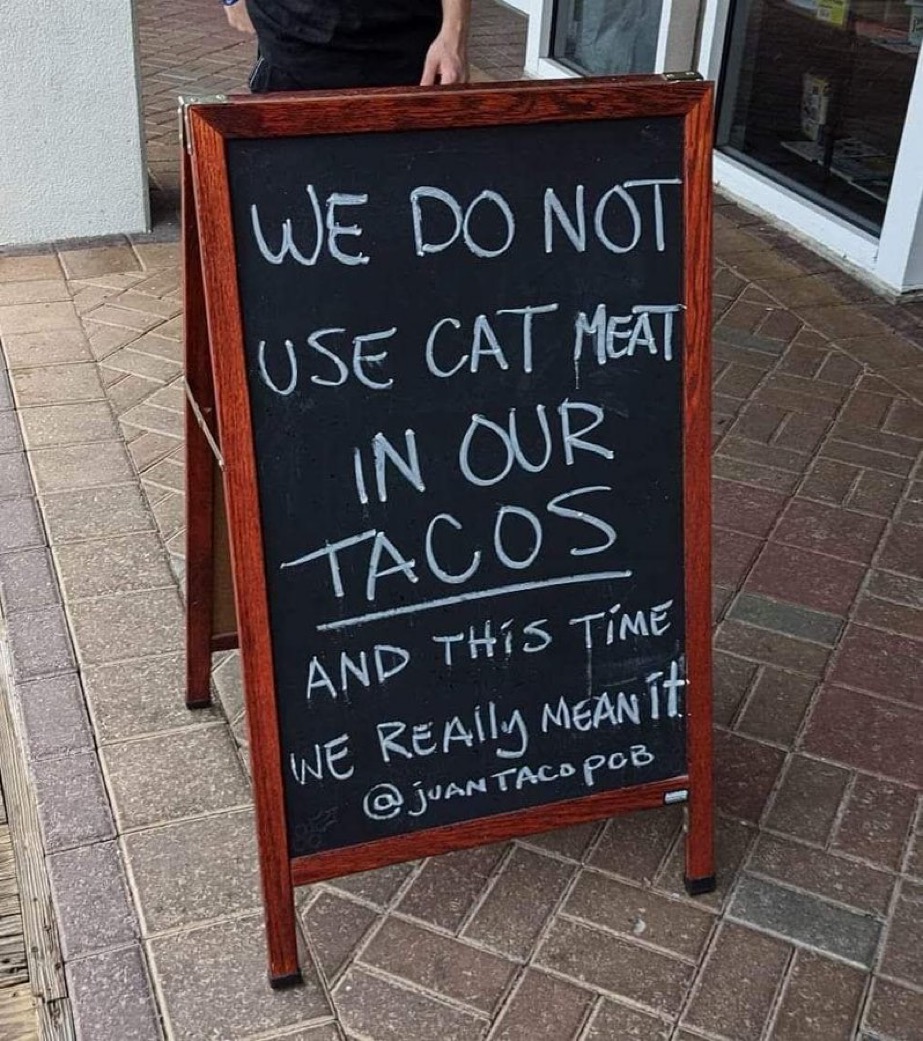 WE DO NOT
USE CAT MEAT
IN OUR
TACOS
AND THiS TiME
WE REAlly MEAN it
@juANTACOPOB